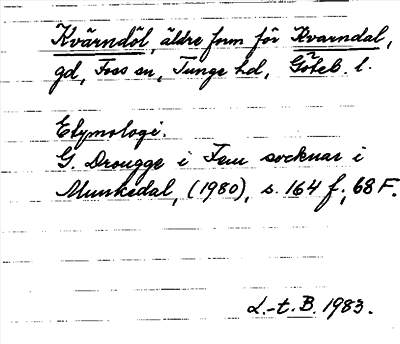 Kvärndöl, äldre form för Kvarndal,
gd, Foss sn, Tunge hd, Göteb. l.
Etymologi.
G. Drougge i Fem socknar i
Munkedal, (1980), s. 164 f; 68 F.
L.-t. B. 1983.